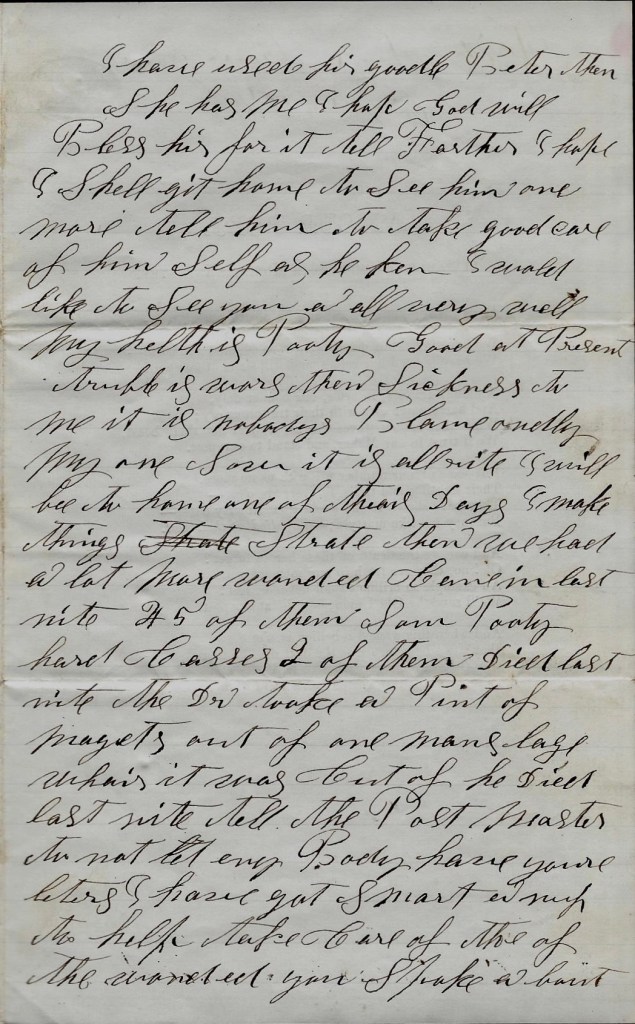 I have used his goodle Peter then
She has me I hope God will
Bless his for it tell Farther I hope
I Shell git home to See him one
more tell him to take good care
of him Self as he ken I wold
like to See you a all very well
My helth is Pooty Good at Present
trubble is wors then Sickness to
me it is nobodys Blame ondly
My one Soun it is all rite I will
bee to home one of theais Days I make
things Shate Strate then we had
a lot more wonded Came in last
nite 45 of them Som Pooty
hard Casses 2 of them Died last
nite the Dr tooke a Pint of
magets out of one mans lage
whair it was Cut of he Died
last nite tell the Post Master
to not let eny Body have youre
leters I have got Smart a nuf
to help take Care of the of
the wonded you Spoke a bout